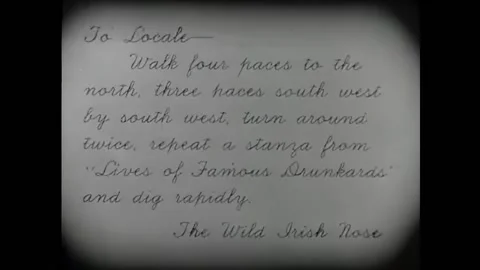 To Locale—
Walk four paces to the
north, three paces south west
by south west, turn around
twice, repeat a stanza from
"Lives of Famous Drunkards"
and dig rapidly.
The Wild Irish Nose